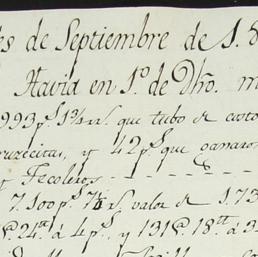 es de Septiembre de 1.8
Havia en 1º. de Dho. m
993 p.s 1¾ r.s que tubo de costo
ruzecitas, y 42 p.s que ganaron
y Fecoleros - - - - -
7.100 p.s 7⅛ r.s valor de 1.73
@s. 24 tt á 4 p.s, y 131 @s 18 tt á 3